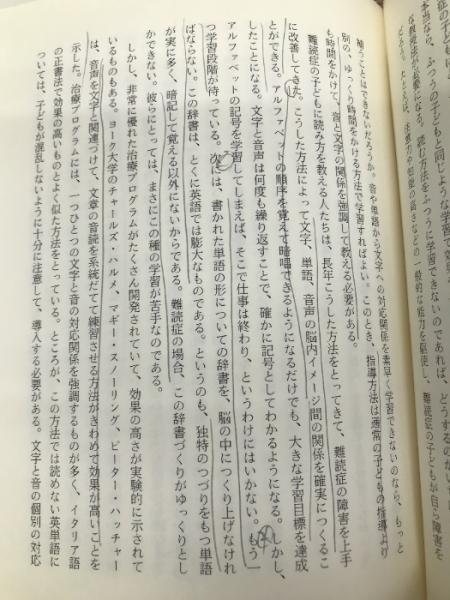 本当なら、ふつうの子どもと同じような学習で
な教授法が必要になる。読み方をふつうに学習できないのであれば、どうするのがい
補うことはできないだろうか。音や母語から文字への対応関係を素早く学習できないのなら、もっと
別の、ゆっくり時間をかける方法で学習すればよい。このとき、指導方法は通常の子どもの指導より
も時間をかけて、音と文字の関係を強調して教える必要がある。
難読症の子どもに読み方を教える人たちは、長年こうした方法をとってきて、難読症の障害を上手
に改善してきた。こうした方法によって文字、単語、音声の脳内イメージ間の関係を確実につくるこ
とができる。アルファベットの順序を覚えて暗唱できるようになるだけでも、大きな学習目標を達成
したことになる。文字と音声は何度も繰り返すことで、確かに記号としてわかるようになる。しかし、
アルファベットの記号を学習してしまえば、そこで仕事は終わり、というわけにはいかない。もう一
つ学習段階が待っている。次には、書かれた単語の形についての辞書を、脳の中につくり上げなけれ
ばならない。この辞書は、とくに英語では膨大なものである。というのも、独特のつづりをもつ単語
が実に多く、暗記して覚える以外にないからである。難読症の場合、この辞書づくりがゆっくりとし
かできない。彼らにとっては、まさにこの種の学習が苦手なのである。
しかし、非常に優れた治療プログラムがたくさん開発されていて、効果の高さが実験的に示されて
いるものもある。ヨーク大学のチャールズ・ハルメ、マギー・スノーリング、ピーター・ハッチャー
は、音声を文字と関連づけて、文章の音読を系統だてて練習させる方法がきわめて効果が高いことを
示した。治療プログラムには、一つひとつの文字と音の対応関係を強調するものが多く、イタリア語
の正書法で効果の高いものとよく似た方法をとっている。ところが、この方法では読めない英単語に
ついては、子どもが混乱しないように十分に注意して、導入する必要がある。文字と音の個別の対応